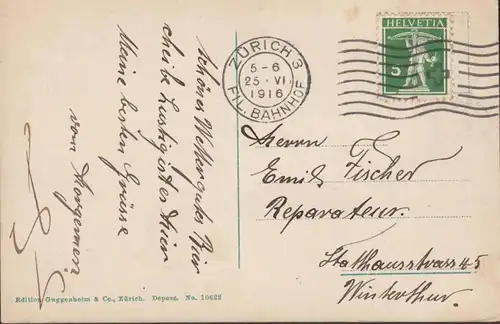 HELVETIA
5
ZÜRICH 3
5-6
25·VI
1916
FIL. BAHNHOF
Schönes Wetter gutes Bier
lustig ist es hier
Meine besten Grüsse
von
Herrn
Emil Fischer
Reparateur.
45
Winterthur.
Edition Guggenheim & Co., Zürich. Depose. No. 10622